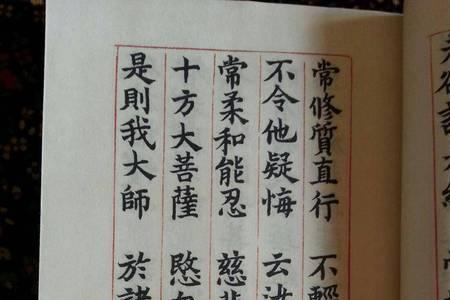 常修質直行 不輕
不令他疑悔 云
常柔和能忍 慈
十方大菩薩 愍
是則我大師 於諸